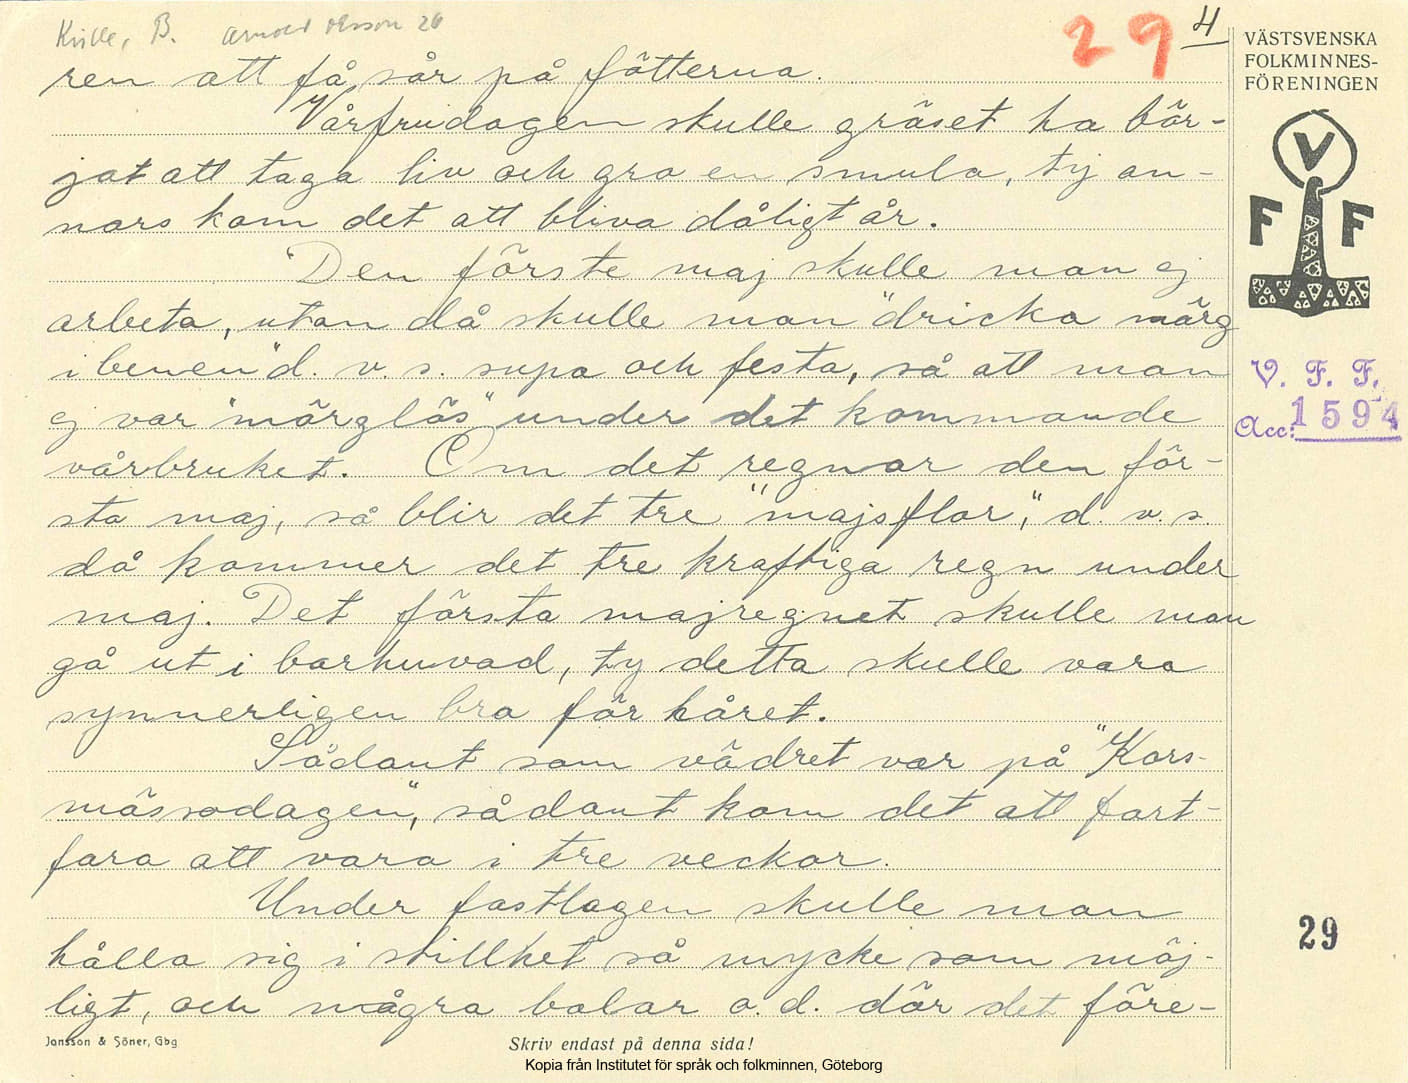 Kville, B. Arnold Olsson 26
29 4
ren att få sår på fötterna.
Vårfrudagen skulle gräset ha bör-
jat att taga liv och gro en smula, ty an-
nars kom det att bliva dåligt år.
Den förste maj skulle man ej
arbeta, utan då skulle man "dricka märg
i benen" d. v. s. supa och festa, så att man
ej var "märglös" under det kommande
vårbruket. Om det regnar den för-
sta maj, så blir det tre "majsflor", d. v. s.
då kommer det tre kraftiga regn under
maj. Det första majregnet skulle man
gå ut i barhuvad, ty detta skulle vara
synnerligen bra för håret.
Sådant som vädret var på "Kors-
mässodagen", sådant kom det att fort-
fara att vara i tre veckor.
Under fastlagen skulle man
hålla sig i stillhet så mycke som möj-
ligt, och några balar o. d. där det före-
VÄSTSVENSKA
FOLKMINNES-
FÖRENINGEN
V
F F
V. F. F.
Acc: 1594
29
Jonsson & Söner, Gbg
Skriv endast på denna sida!
Kopia från Institutet för språk och folkminnen, Göteborg